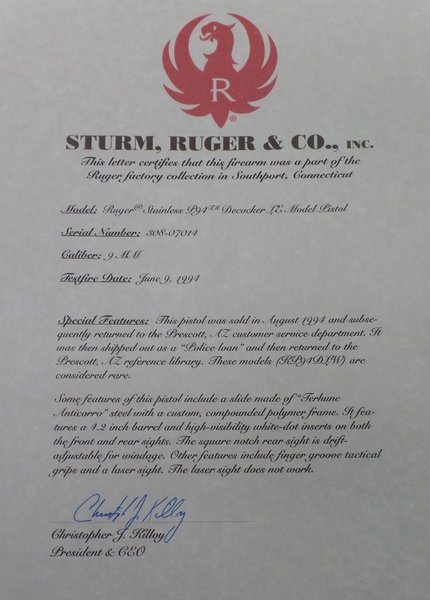 R
®
STURM, RUGER & CO., INC.
This letter certifies that this firearm was a part of the
Ruger factory collection in Southport, Connecticut
Model: Ruger® Stainless P94™ Decocker LE Model Pistol
Serial Number: 308-07014
Caliber: 9 MM
Testfire Date: June 9, 1994
Special Features: This pistol was sold in August 1994 and subse-
quently returned to the Prescott, AZ customer service department. It
was then shipped out as a "Police loan" and then returned to the
Prescott, AZ reference library. These models (KP94DLW) are
considered rare.
Some features of this pistol include a slide made of "Terhune
Anticorro" steel with a custom, compounded polymer frame. It fea-
tures a 4.2 inch barrel and high-visibility white-dot inserts on both
the front and rear sights. The square notch rear sight is drift-
adjustable for windage. Other features include finger groove tactical
grips and a laser sight. The laser sight does not work.
Christoph J. Killoy
Christopher J. Killoy
President & CEO